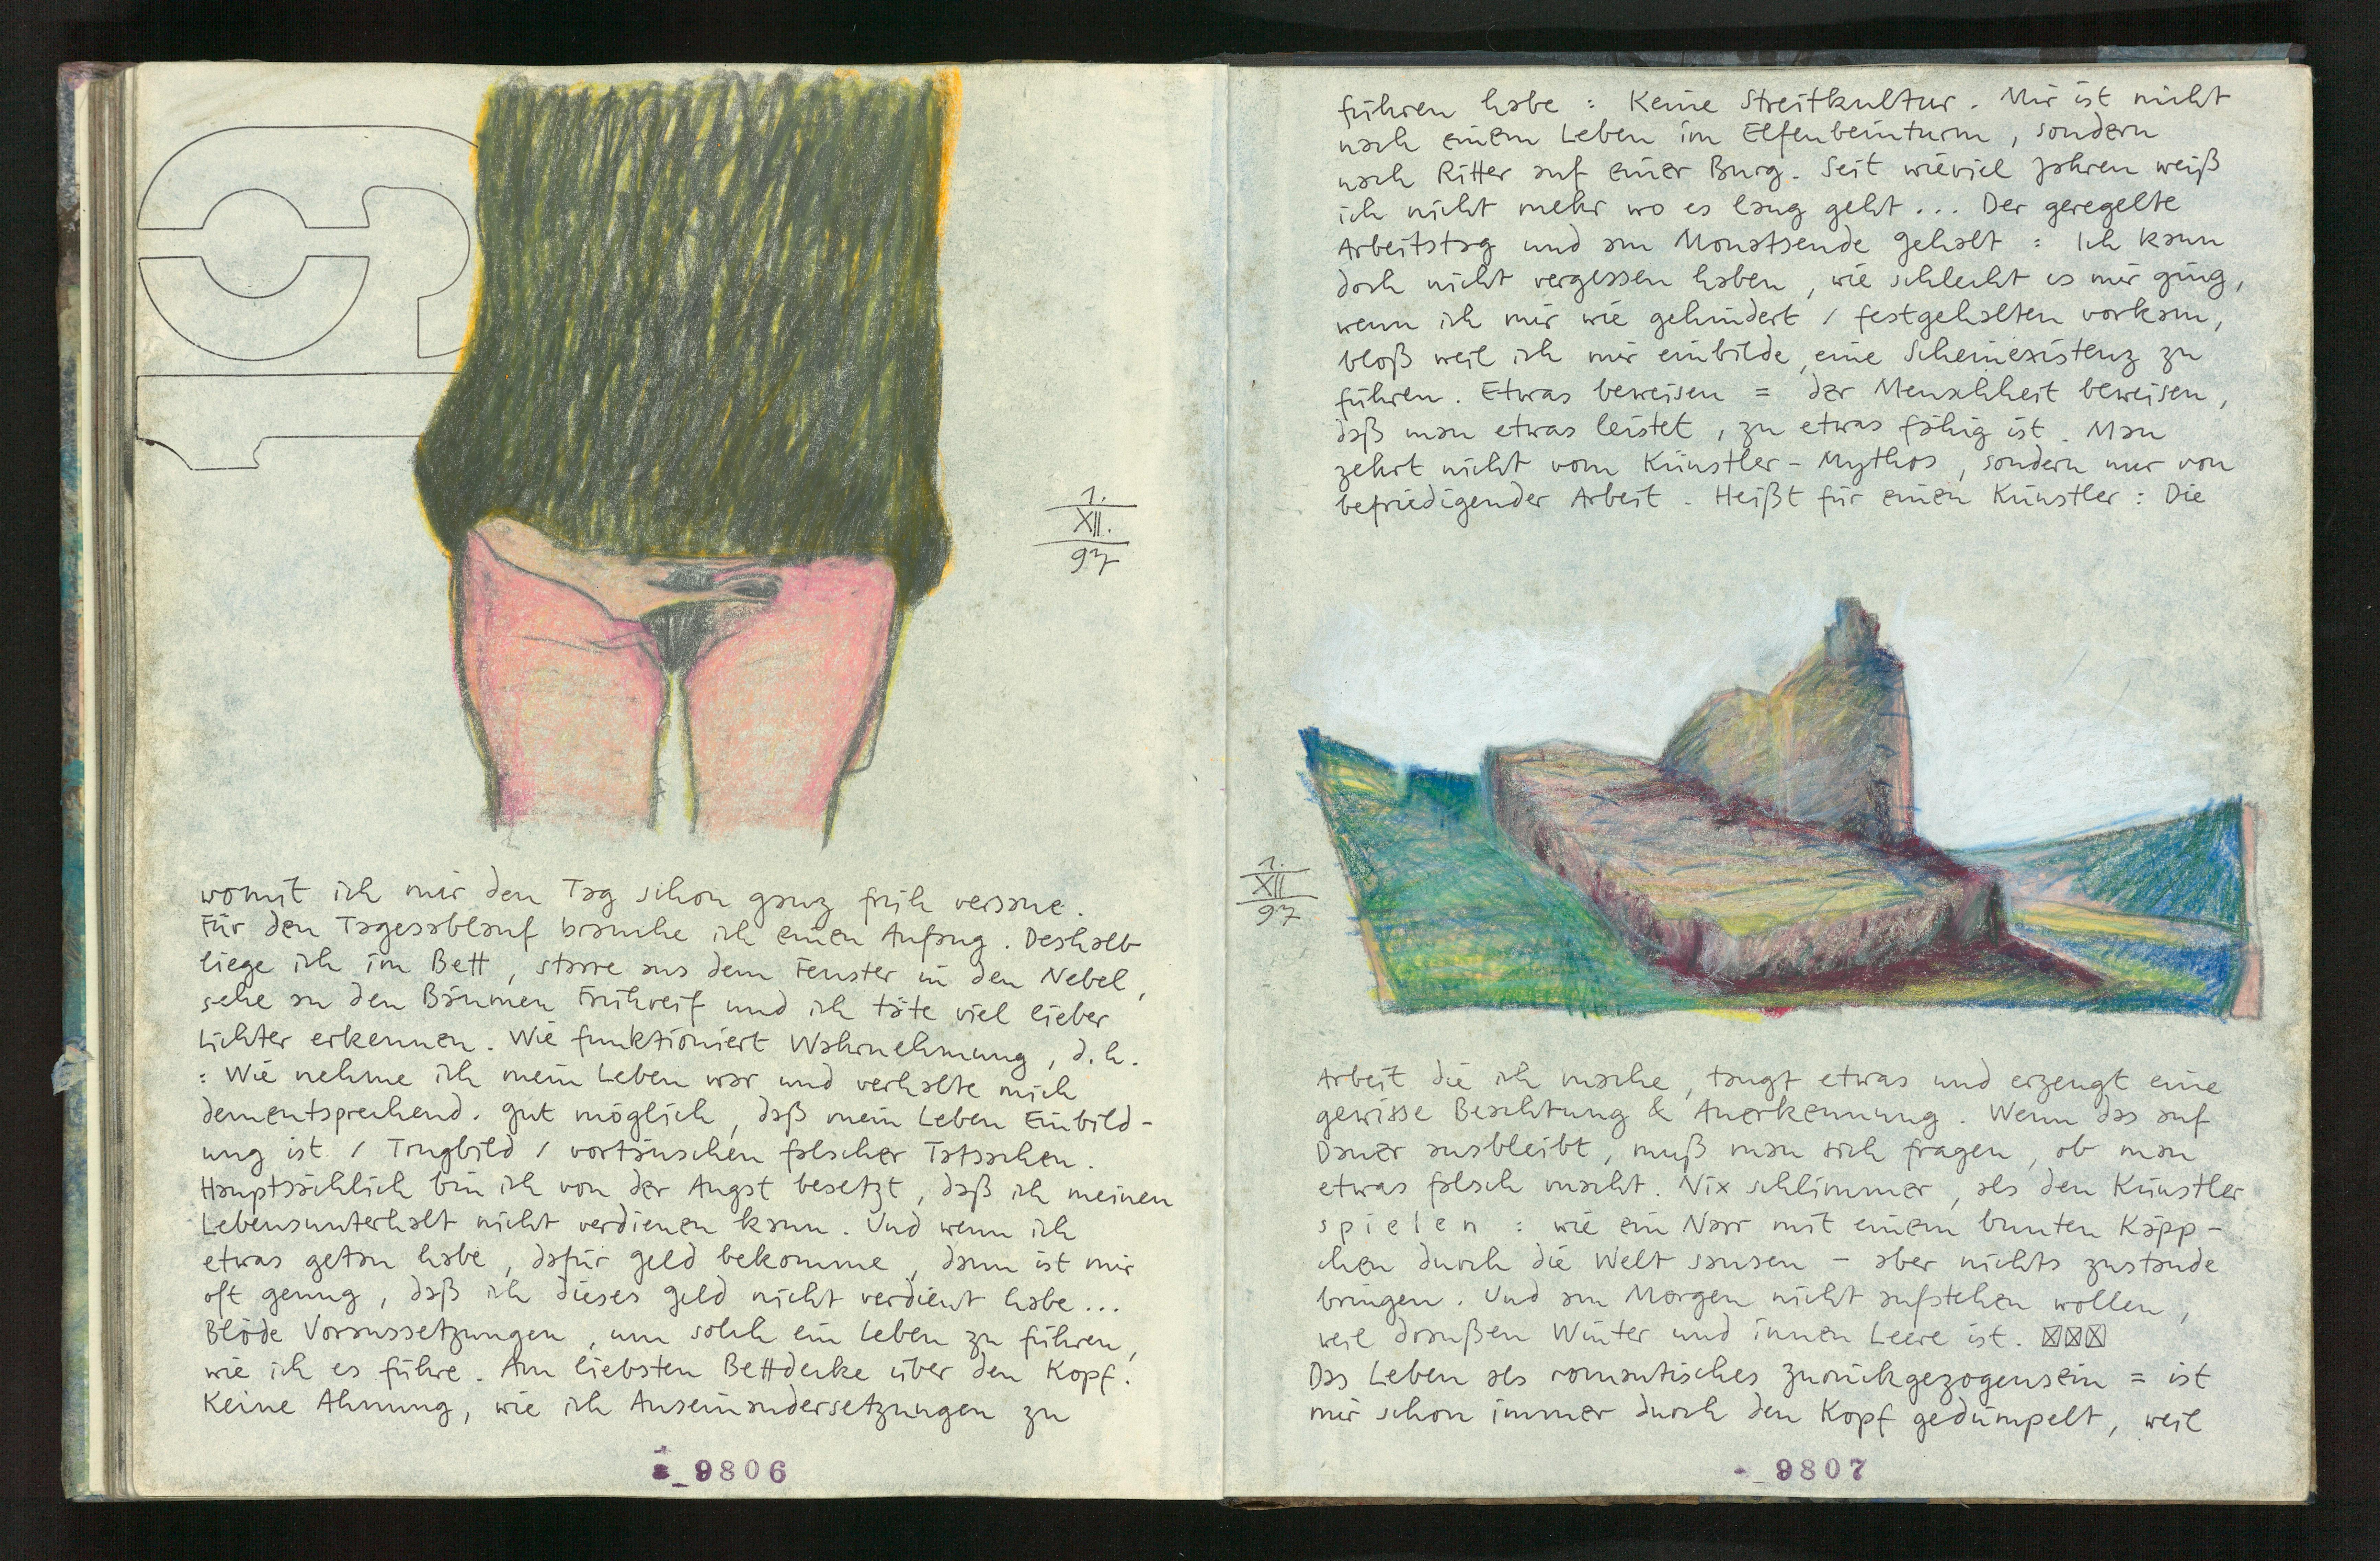 1.
XII.
97
womit ich mir den Tag schon ganz früh versaue.
Für den Tagesablauf brauche ich einen Anfang. Deshalb
liege ich im Bett, starre aus dem Fenster in den Nebel,
sehe an den Bäumen Frühreif und ich täte viel lieber
Lichter erkennen. Wie funktioniert Wahrnehmung, d.h.
: Wie nehme ich mein Leben war und verhalte mich
dementsprechend. Gut möglich, daß mein Leben Einbild-
ung ist / Trugbild / vortäuschen falscher Tatsachen.
Hauptsächlich bin ich von der Angst besetzt, daß ich meinen
Lebensunterhalt nicht verdienen kann. Und wenn ich
etwas getan habe, dafür Geld bekomme, dann ist mir
oft genug, daß ich dieses Geld nicht verdient habe...
Blöde Voraussetzungen, um solch ein Leben zu führen,
wie ich es führe. Am liebsten Bettdecke über den Kopf.
Keine Ahnung, wie ich Auseinandersetzungen zu
9806
führen habe : Keine Streitkultur. Mir ist nicht
nach einem Leben im Elfenbeinturm, sondern
nach Ritter auf einer Burg. Seit wieviel Jahren weiß
ich nicht mehr wo es lang geht... Der geregelte
Arbeitstag und am Monatsende Gehalt : Ich kann
doch nicht vergessen haben, wie schlecht es mir ging,
wenn ich mir wie gehindert / festgehalten vorkam,
bloß weil ich mir einbilde, eine Scheinexistenz zu
führen. Etwas beweisen = der Menschheit beweisen,
daß man etwas leistet, zu etwas fähig ist. Man
zehrt nicht vom Künstler-Mythos, sondern nur von
befriedigender Arbeit. Heißt für einen Künstler : Die
1.
XII
97
Arbeit die ich mache, taugt etwas und erzeugt eine
gewisse Beachtung & Anerkennung. Wenn das auf
Dauer ausbleibt, muß man sich fragen, ob man
etwas falsch macht. Nix schlimmer, als den Künstler
spielen : wie ein Narr mit einem bunten Käpp-
chen durch die Welt sausen - aber nichts zustande
bringen. Und am Morgen nicht aufstehen wollen,
weil draußen Winter und innen Leere ist.
Das Leben als romantisches Zurückgezogensein = ist
mir schon immer durch den Kopf gedümpelt, weil
9807